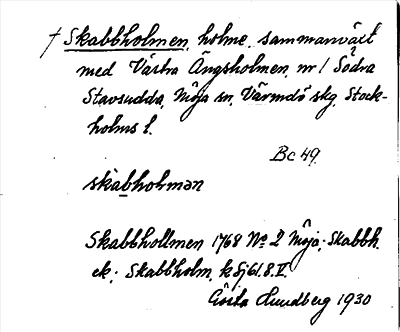 † Skabbholmen, holme, sammanväxt
med Västra Ängsholmen, nr 1 Södra
Stavsudda, Möja sn, Värmdö skg, Stock-
holms l.
Bc 49.
skabholmən
Skabbhollmen 1768 No 2 Möja; Skabbh.
ek; Skabbholm, kSj61.8.V.
Gösta Lundberg 1930